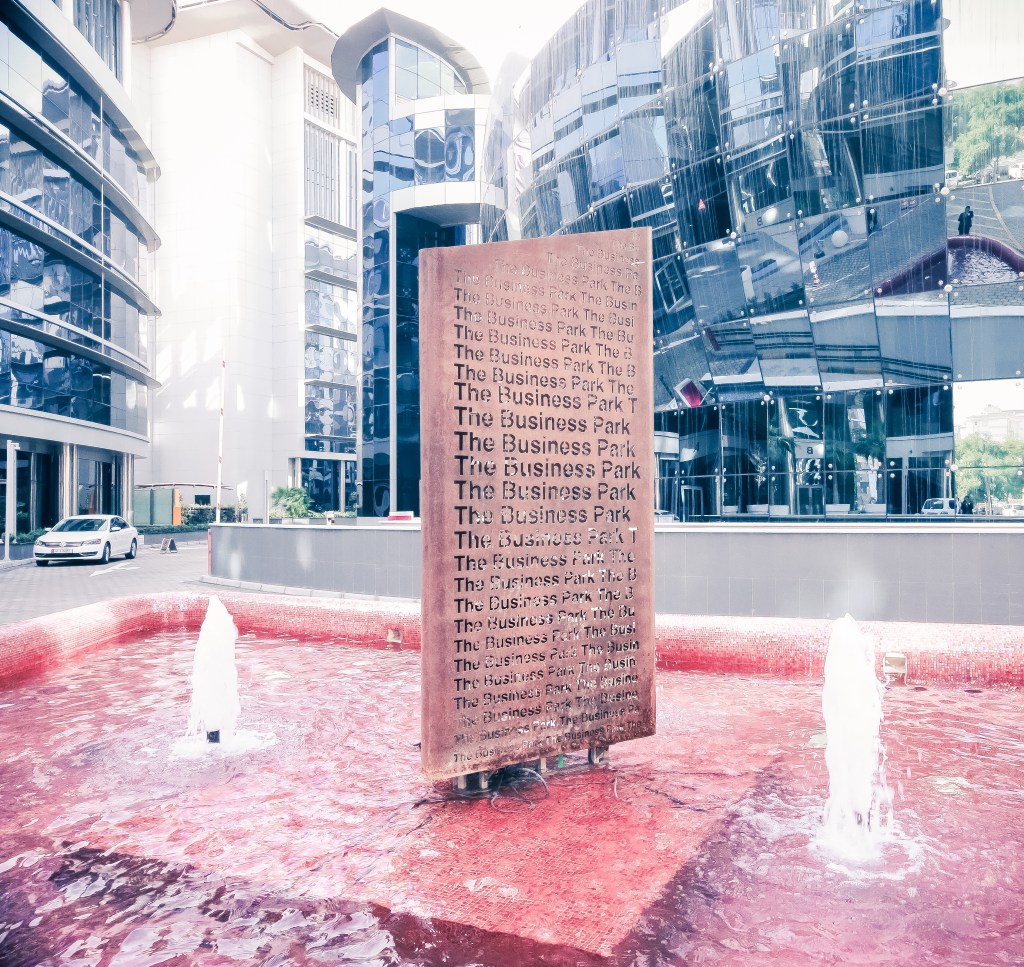 The Business
The Business Pa
The Business Park The B
The Business Park The Busin
The Business Park The Busi
The Business Park The Bu
The Business Park The B
The Business Park The B
The Business Park The
The Business Park T
The Business Park
The Business Park
The Business Park
The Business Park
The Business Park
The Business Park T
The Business Park The
The Business Park The B
The Business Park The B
The Business Park The Bu
The Business Park The Busi
The Business Park The Busin
The Business Park The Busin
The Business Park The Busine
The Business Park The Busine
The Business Park The Business Pa
The Business Park The Business Park The
8